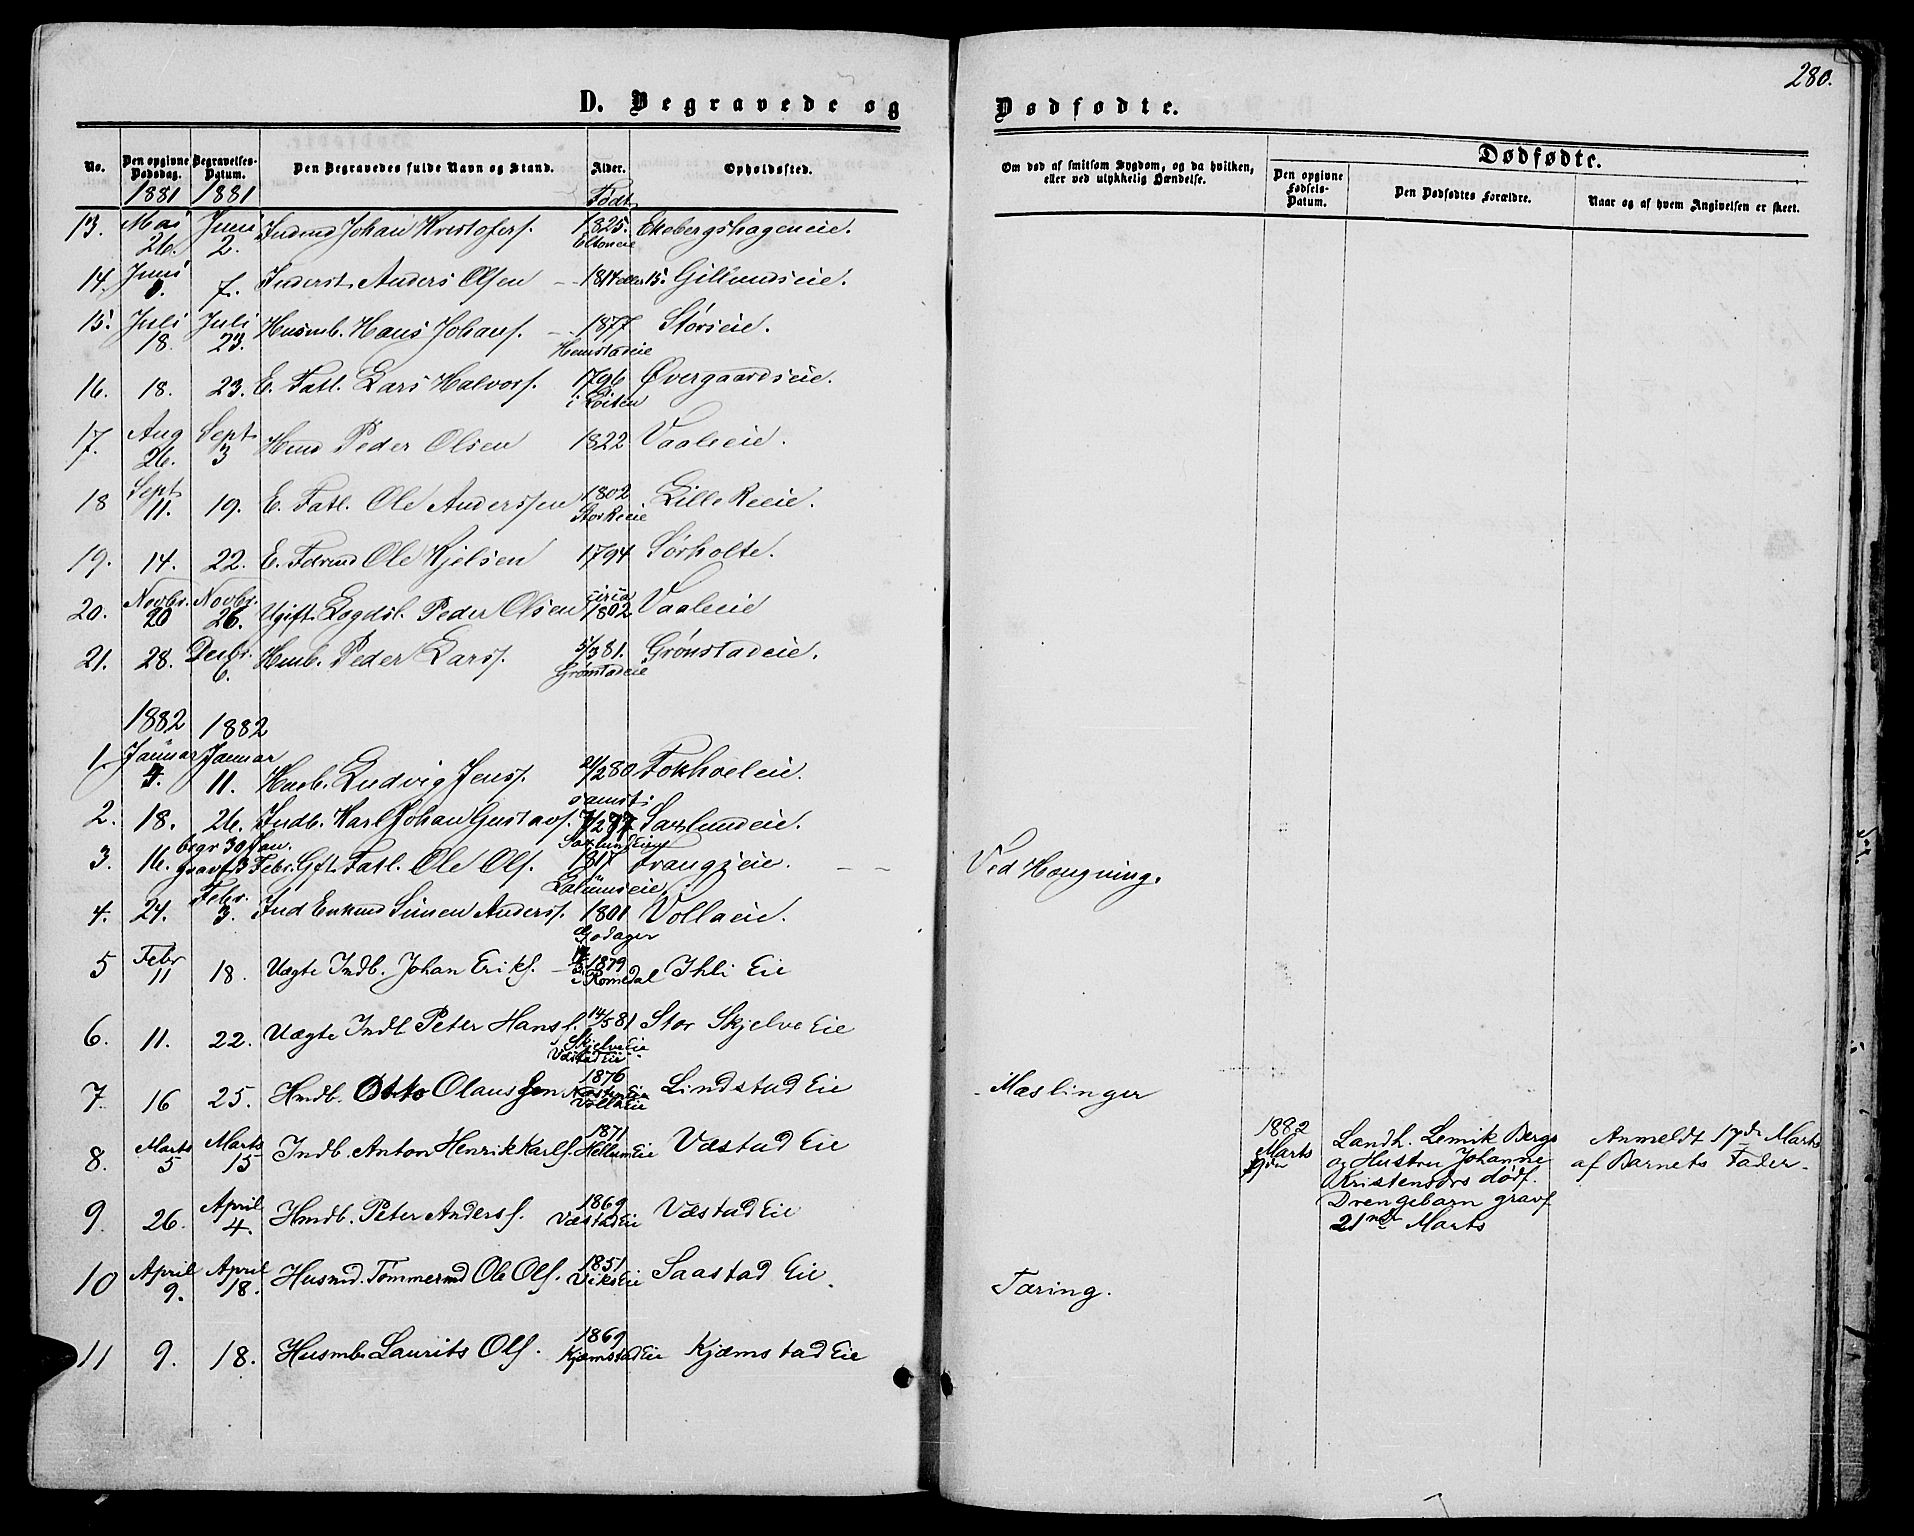 280.
D. Begravede og Dødfødte.
No. Den opgivne Dødsdag. Begravelses-Datum. Den Begravedes fulde Navn og Stand. Alder. Opholdssted.
Om død af smitsom Sygdom, og da hvilken, eller ved ulykkelig Hændelse.
Dødfødte.
Den opgivne Fødsels-Datum. Den Dødfødtes Forældre. Naar og af hvem Angivelsen er skeet.
1881 1881 Født
13. Mai 26. Juni 2. Johan Kristofers. 1825. Ekebergshageneie.
14. Juni Inderst. Anders Olsen 1814 eller 15. Gillundseie.
15. Juli 18. Juli 23. Husmb. Hans Johans. 1877 Størseie.
Hemstadeie
16. 18. 23. E. Fatl. Lars Halvors. 1796 i Løiten Øvergaardseie.
17. Aug 26. Sept. 3 Hmd Peder Olsen 1822 Vaaleeie.
18 Sept. 11. 19. E. Fatl. Ole Anderssen 1802 Stor Reeie Lille Reeie.
19. 14. 22. E. Ole Kjelsen 1794 Sørholte.
20. Novbr. 20 Novbr. 26. Ugift. Legdsl. Peder Olsen circa 1802 Vaaleeie
21. 28. Decbr. 6. Hmb. Peder Larss. 5/3 81. Grønstadeie Grønstadeie.
1882 1882
1. Januar Januar 11. Husb. Ludvig Jenss. 21/2 80 Fokholeie.
2. 18. 26. Indb. Karl Johan Gustavs. Sørlundeie.
3. 16. begr 30 Jan. gravf. 3 Febr. Gft. Fatl. Ole Ols. 1817 Frangseie. Ved Hængning.
4. 24. Febr. 3. Ind Enkmd Simen Anderss. 1801 Vollaeie.
Godager
5 Febr 11 18. Uægte Indb. Johan Eriks. 1879 i Romedal Ihli Eie
6. 11. 22. Uægte Indb Peter Hanss. 14/5 81 Skjelve Eie Stor Skjelve Eie
Væstad Eie
7 16 25. Hmdb. Otto Olaussen 1876 Volla Eie Lindstad Eie Mæslinger
8. Marts 5 Marts 15 Indb. Anton Henrik Karls. 1871 Hellum Eie Væstad Eie
1882 Marts Landh. Lemik Berg og Hustru Johanne Kristensdrs dødf. Drengebarn gravf 21nd Marts
Anmeldt 17de Marts af Barnets Fader.
9. 26. April 4. Hmdb. Peter Anderss. 1869 Væstad Eie Væstad Eie
10 April 9. April 18. Husmd. Tømmermd Ole Ols. 1851 Viks Eie Saastad Eie. Tæring.
11 9. 18. Husmb. Laurits Ols. 1869 Kjæmstad Eie Kjæmstad Eie